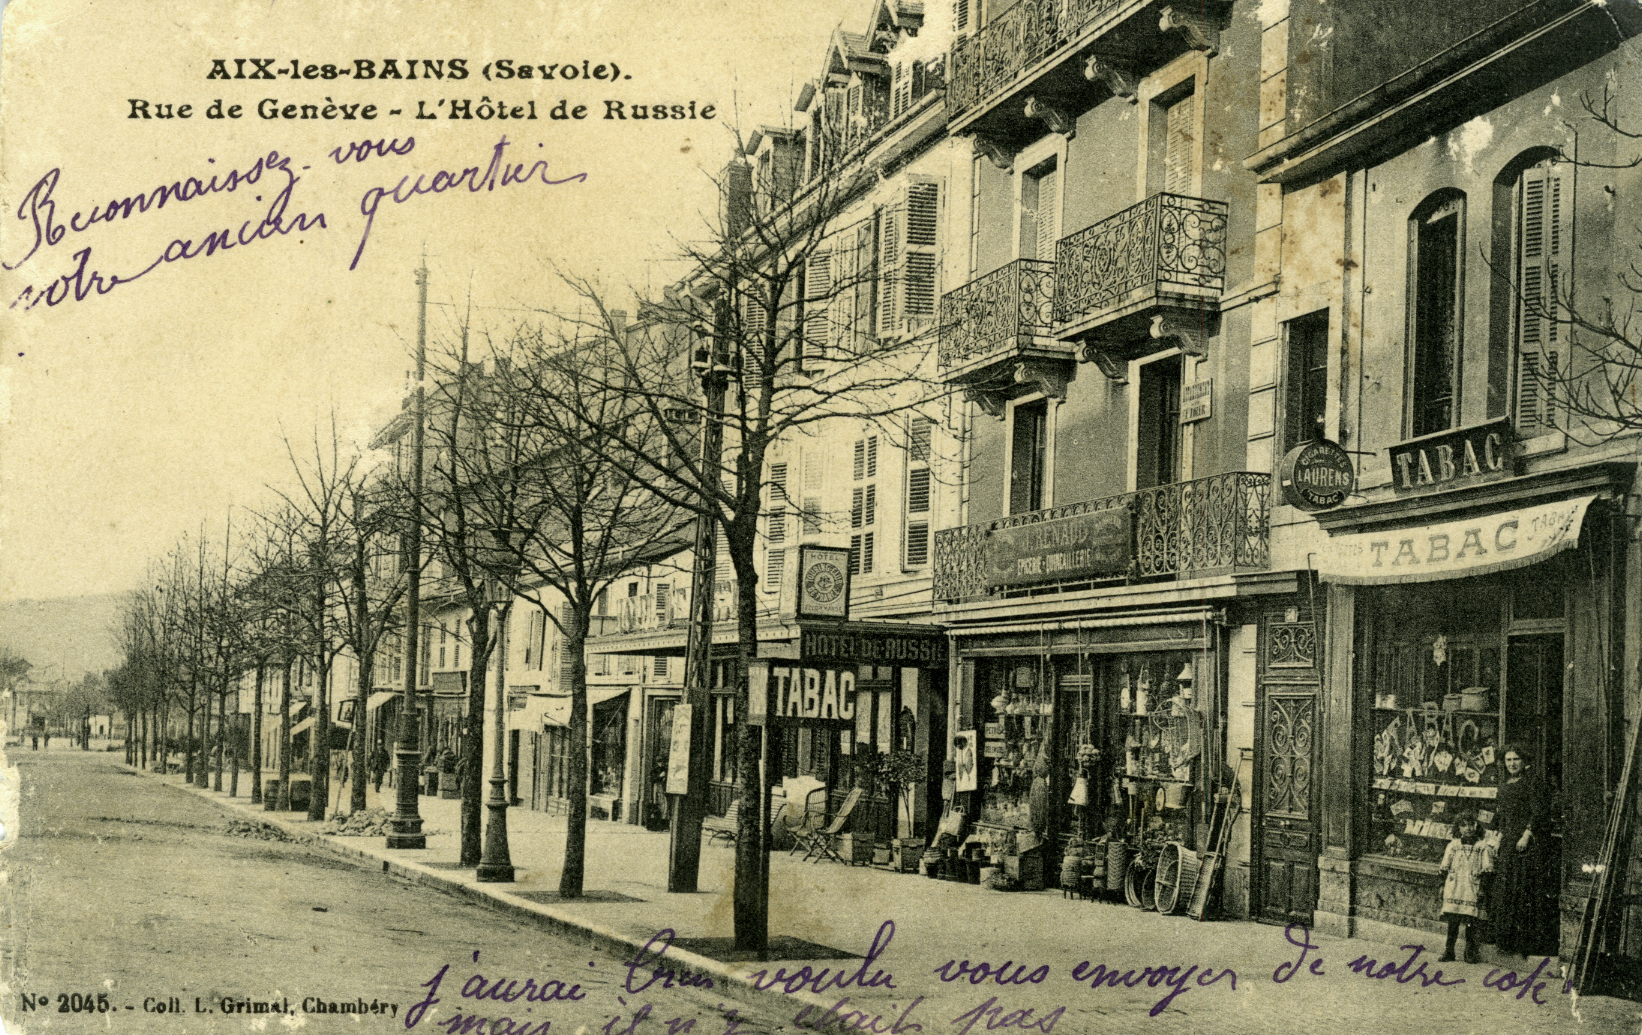 AIX-les-BAINS (Savoie).
Rue de Genève - L'Hôtel de Russie
Reconnaissez-vous
votre ancien quartier
CIGARETTES
LAURENS
TABAC
TABAC
TABAC
RENAUD
EPICERIE - QUINCAILLERIE
HÔTEL
HÔTEL DE RUSSIE
TABAC
TABAC
j'aurai bien voulu vous envoyer de notre coté
mais il n'y etait pas
Nº 2045. - Coll. L. Grimal, Chambéry